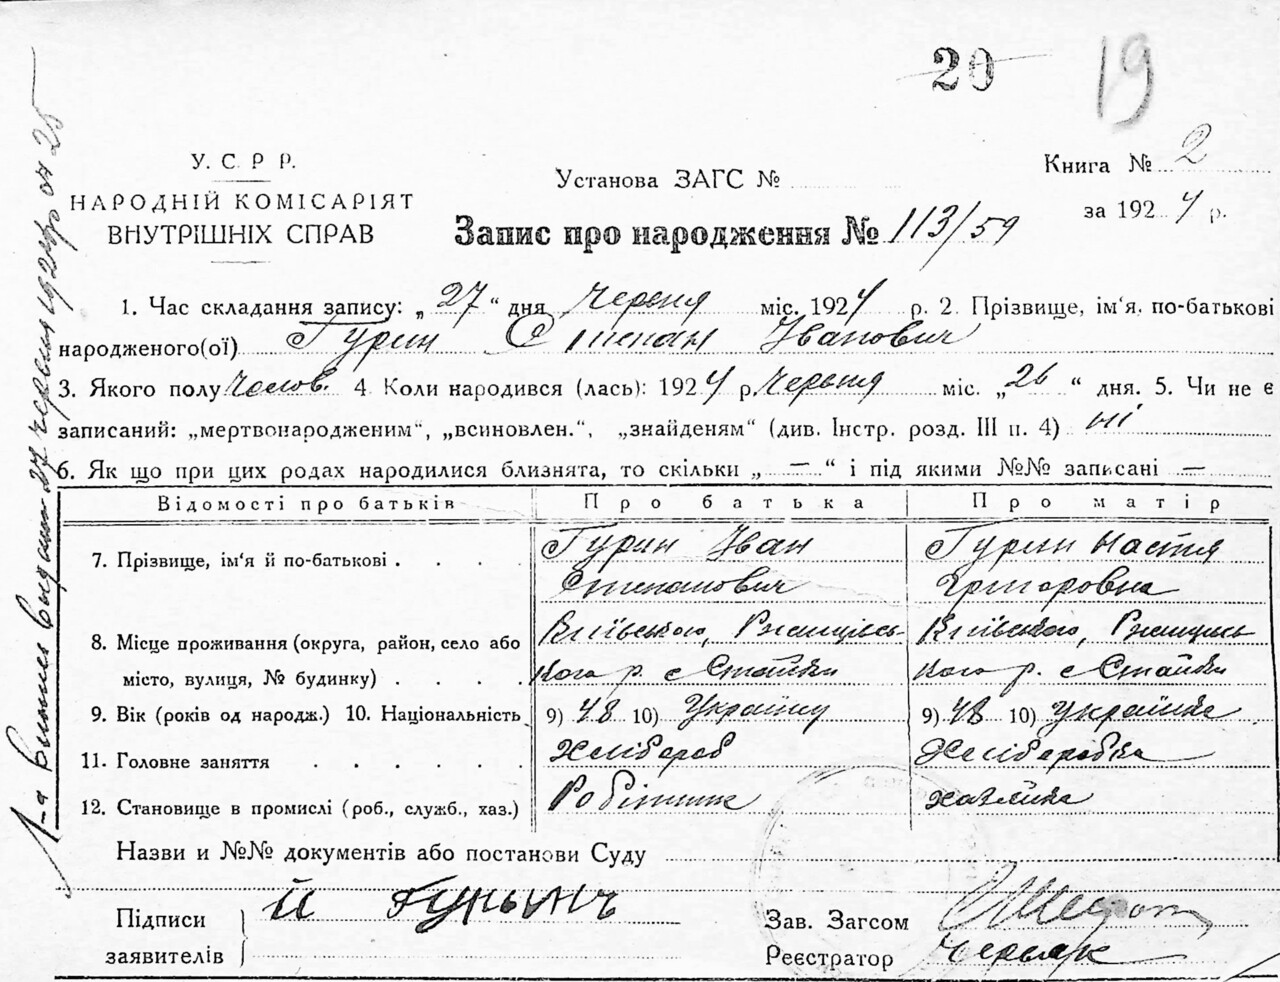 20 19
У. С. Р Р.
НАРОДНІЙ КОМІСАРІЯТ
ВНУТРІШНІХ СПРАВ
Установа ЗАГС №
Книга № 2
за 1924 р.
Запис про народження № 113/59
1. Час складання запису: „27“ дня Червня міс. 1924 р. 2. Прізвище, ім'я, по-батькові
народженого(ої) Гурин Степан Іванович
3. Якого полу Челов. 4. Коли народився (лась): 1924 р. Червня міс. „26“ дня. 5. Чи не є
записаний: „мертвонародженим“, „всиновлен.“, „знайденям“ (див. Інстр. розд. III п. 4) ні
6. Як що при цих родах народилися близнята, то скільки „—“ і під якими №№ записані —
Відомості про батьків Про батька Про матір
7. Прізвище, ім'я й по-батькові . . . . Гурин Іван Гурин Настя
Степанович Григоровна
8. Місце проживання (округа, район, село або Київського, Ржищівсь- Київського, Ржищівсь
місто, вулиця, № будинку) . . . . кого р. с Стайки кого р. с Стайки
9. Вік (років од народж.) 10. Національність 9) 48 10) Україну 9) 43 10) Українка
11. Головне заняття . . . . . . Хлібороб Хлібаробка
12. Становище в промислі (роб., служб., хаз.) Робітник хазяйка
Назви и №№ документів або постанови Суду
Підписи
заявителів
Й Гурынъ
Зав. Загсом
Реєстратор Червяк
1-а Выпись выдана 27 червня 1924р за 25